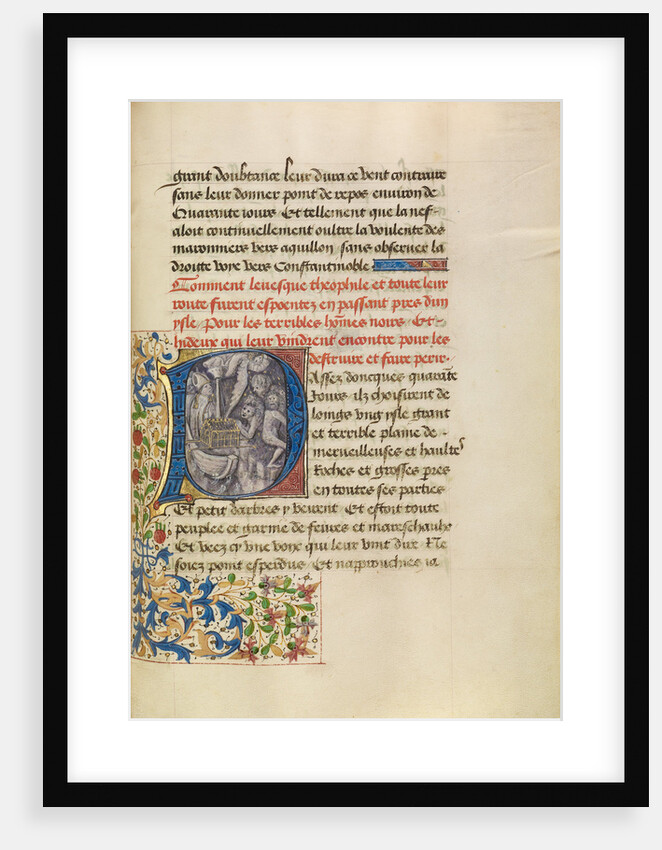 grant doubtance leur dura ce vent contraire
sans leur donner point de repos enuiron de
Quarante iours Et tellement que la nef
aloit continuellement oultre la voulente des
maronniers vers aquillon sans obseruer la
droite voye vers Constantinoble
Comment leuesque theophile et toute leur
route furent espoentez en passant pres dun
ysle Pour les terribles hommes noirs Et
hideux qui leur vindrent encontre pour les
destruire et faire perir.
Passez doncques quarante
Iours ilz choisirent de
loings vng ysle grant
et terrible plaine de
merueilleuses et haultes
Roches et grosses pres
en toutes ses parties
Et petit darbres y veirent Et estoit toute
peuplee et garnie de feures et mareschaulx
Et veez cy vne voix qui leur vint dire Ne
soiez point esperdus Et napprouchies ia